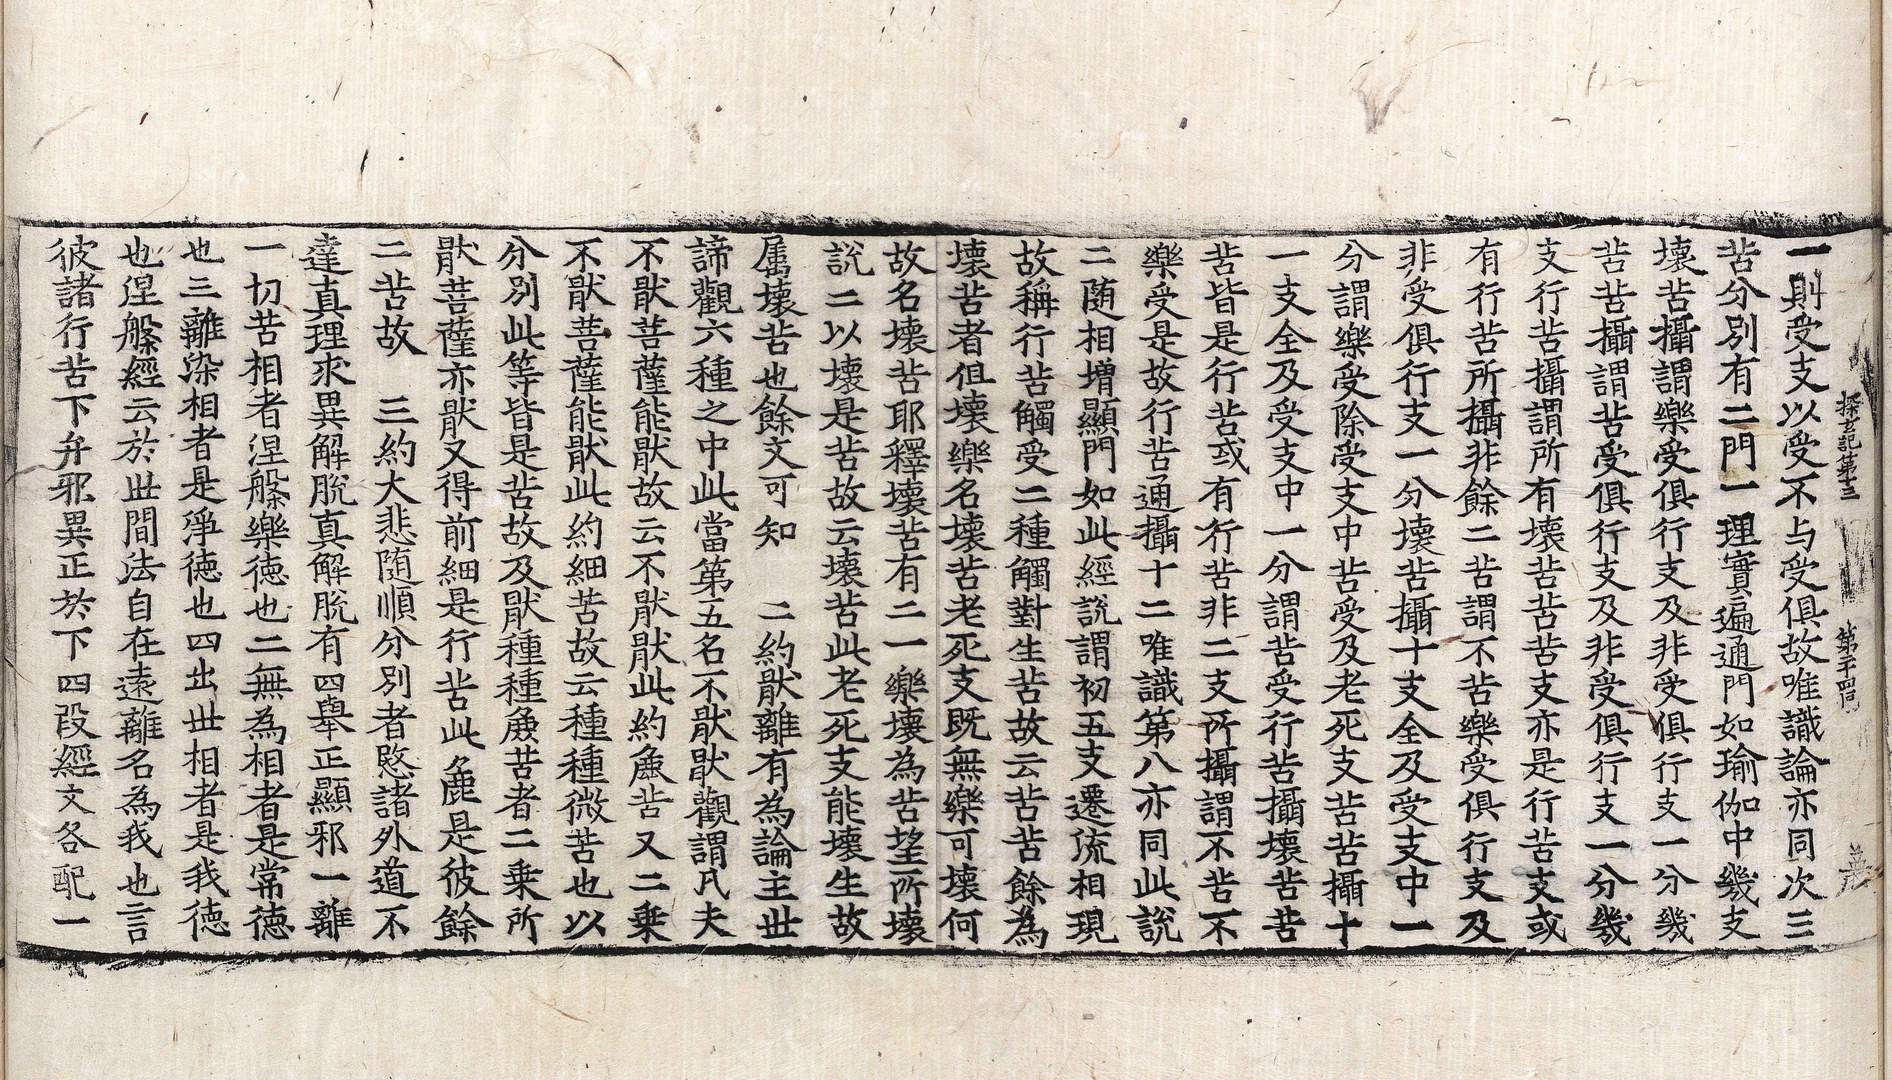 探玄記第十三 第二十四 幅
一則受支以受不与受俱故唯識論亦同次三
苦分別有二門一理實遍通門如瑜伽中幾支
壞苦攝謂樂受俱行支及非受俱行支一分幾
苦苦攝謂苦受俱行支及非受俱行支一分幾
支行苦攝謂所有壞苦苦苦支亦是行苦支或
有行苦所攝非餘二苦謂不苦樂受俱行支及
非受俱行支一分壞苦攝十支全及受支中一
分謂樂受除受支中苦受及老死支苦苦攝十
一支全及受支中一分謂苦受行苦攝壞苦苦
苦皆是行苦或有行苦非二支所攝謂不苦不
樂受是故行苦通攝十二唯識第八亦同此說
二随相增顯門如此經說謂初五支遷流相現
故稱行苦觸受二種觸對生苦故云苦苦餘為
壞苦者但壞樂名壞苦老死支既無樂可壞何
故名壞苦耶釋壞苦有二一樂壞為苦望所壞
說二以壞是苦故云壞苦此老死支能壞生故
屬壞苦也餘文可知 二約猒離有為論主世
諦觀六種之中此當第五名不猒猒觀謂凡夫
不猒菩薩能猒故云不猒猒此約麁苦又二乗
不猒菩薩能猒此約細苦故云種種微苦也以
分別此等皆是苦故及猒種種麁苦者二乗所
猒菩薩亦猒又得前細是行苦此麁是彼餘
二苦故 三約大悲随順分別者愍諸外道不
達真理求異解脫真解脫有四舉正顯邪一離
一切苦相者涅槃樂德也二無為相者是常德
也三離染相者是淨德也四出世相者是我德
也涅槃經云於世間法自在遠離名為我也言
彼諸行苦下弁邪異正於下四段經文各配一